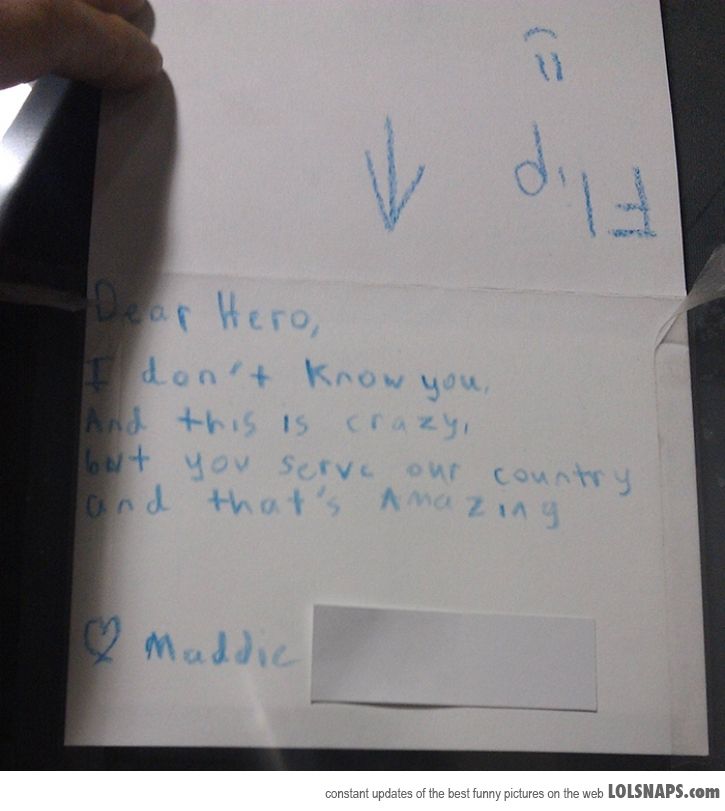 Flip =)
Dear Hero,
I don't know you,
And this is crazy,
but you serve our country
and that's Amazing
♡ Maddie
constant updates of the best funny pictures on the web LOLSNAPS.com